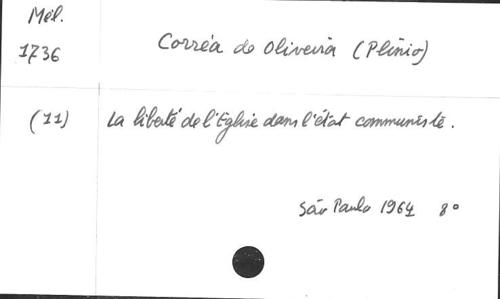 Mél.
1736
Corrêa de Oliveira (Plinio)
(11) La liberté de l'Eglise dans l'état communiste.
São Paulo 1964 8°